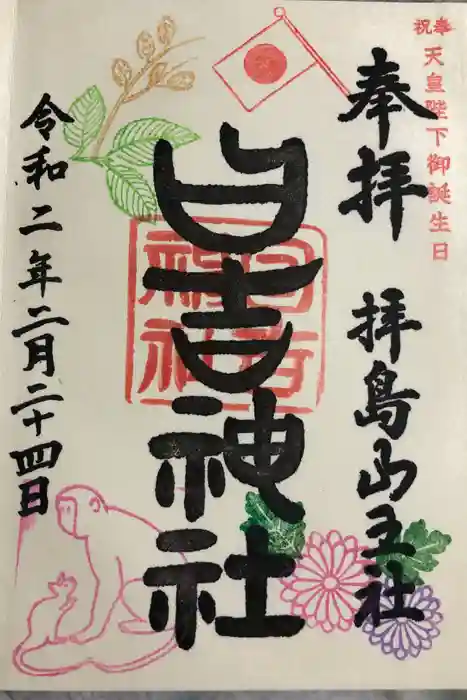 奉祝
天皇陛下御誕生日
奉拝
拝島山王社
日吉神社
日吉神社
令和二年二月二十四日